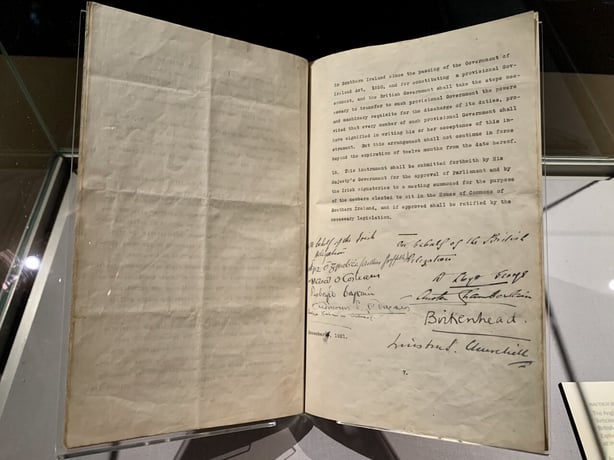 in Southern Ireland since the passing of the Government of
Ireland Act, 1920, and for constituting a provisional Gov-
ernment, and the British Government shall take the steps nec-
essary to transfer to such provisional Government the powers
and machinery requisite for the discharge of its duties, pro-
vided that every member of such provisional Government shall
have signified in writing his or her acceptance of this in-
strument. But this arrangement shall not continue in force
beyond the expiration of twelve months from the date hereof.
18. This instrument shall be submitted forthwith by His
Majesty's Government for the approval of Parliament and by
the Irish signatories to a meeting summoned for the purpose
of the members elected to sit in the House of Commons of
Southern Ireland, and if approved shall be ratified by the
necessary legislation.
On behalf of the Irish
Delegation
On behalf of the British
Delegation
D Lloyd George
Austen Chamberlain
Birkenhead.
Winston S. Churchill
December 6, 1921.
7.